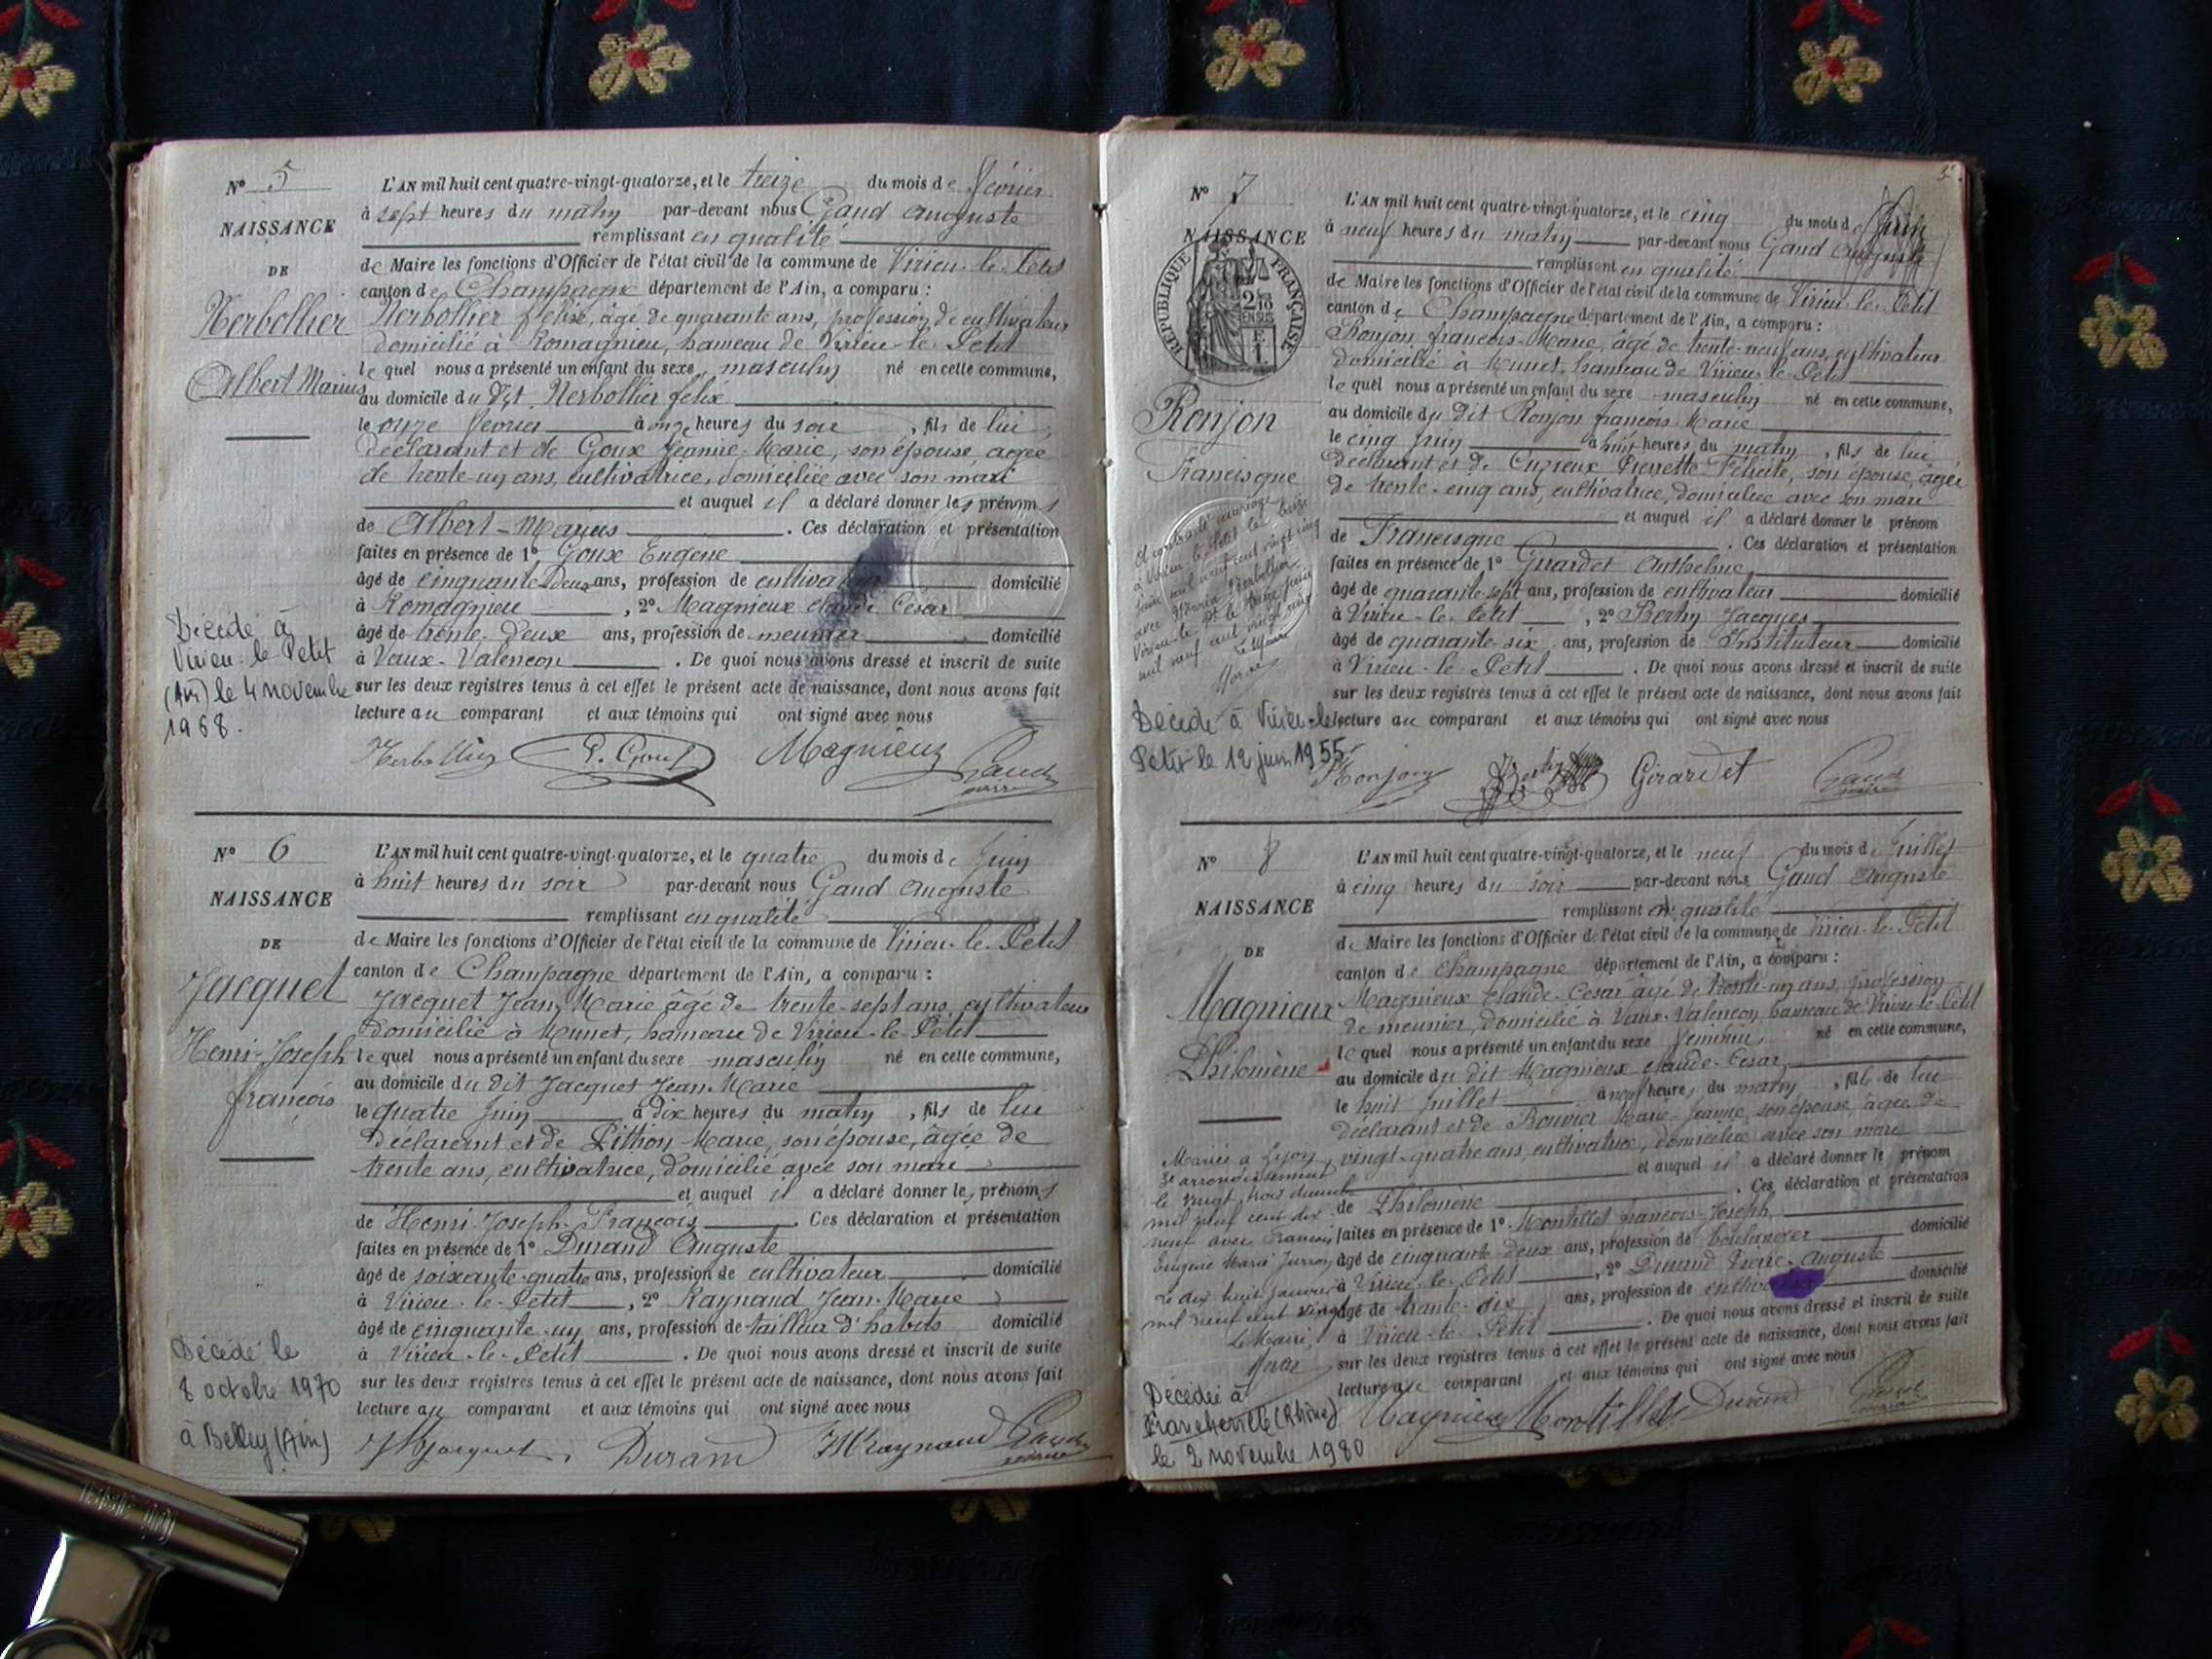 N° 5
NAISSANCE
DE
Herbollier
Albert Marius
L'AN mil huit cent quatre-vingt-quatorze, et le treize du mois de février
à sept heures du matin par-devant nous Gaud Auguste
remplissant en qualité
de Maire les fonctions d'Officier de l'état civil de la commune de Virieu-le-Petit
canton de Champagne département de l'Ain, a comparu :
Herbollier félix, âgé de quarante ans, profession de cultivateur
domicilié à Romagnieu, hameau de Virieu-le-Petit
lequel nous a présenté un enfant du sexe masculin né en cette commune,
au domicile du dit Herbollier félix
le onze février à onze heures du soir, fils de lui
déclarant et de Goux Jeanne-Marie, son épouse, agée
de trente-un ans, cultivatrice, domiciliée avec son mari
et auquel il a déclaré donner les prénoms
de Albert-Marius. Ces déclaration et présentation
faites en présence de 1° Goux Eugène
âgé de cinquante deux ans, profession de cultivateur domicilié
à Romagnieu, 2° Magnieux Claude César
âgé de trente-deux ans, profession de meunier domicilié
à Vaux-Valencon. De quoi nous avons dressé et inscrit de suite
sur les deux registres tenus à cet effet le présent acte de naissance, dont nous avons fait
lecture au comparant et aux témoins qui ont signé avec nous
Herbollier Magnieux Gaud
Décédé à
Virieu-le-Petit
(Ain) le 4 novembre
1968.
N° 6
NAISSANCE
DE
Jacquet
Henri-Joseph
françois
L'AN mil huit cent quatre-vingt-quatorze, et le quatre du mois de Juin
à huit heures du soir par-devant nous Gaud Auguste
remplissant en qualité
de Maire les fonctions d'Officier de l'état civil de la commune de Virieu-le-Petit
canton de Champagne département de l'Ain, a comparu :
Jacquet Jean Marie âgé de trente-sept ans, cultivateur
domicilié à Munet, hameau de Virieu-le-Petit
lequel nous a présenté un enfant du sexe masculin né en cette commune,
au domicile du dit Jacquet Jean-Marie
le quatre Juin à dix heures du matin, fils de lui
déclarant et de Pithion Marie, son épouse, âgée de
trente ans, cultivatrice, domicilié avec son mari
et auquel il a déclaré donner les prénoms
de Henri-Joseph-François. Ces déclaration et présentation
faites en présence de 1° Durand Auguste
âgé de soixante-quatre ans, profession de cultivateur domicilié
à Virieu-le-Petit, 2° Raynaud Jean-Marie
âgé de cinquante-un ans, profession de tailleur d'habits domicilié
à Virieu-le-Petit. De quoi nous avons dressé et inscrit de suite
sur les deux registres tenus à cet effet le présent acte de naissance, dont nous avons fait
lecture au comparant et aux témoins qui ont signé avec nous
Jacquet Durand Raynaud Gaud
Décédé le
8 octobre 1970
à Belley (Ain)
N° 7
NAISSANCE
RÉPUBLIQUE FRANÇAISE
Ronjon
Francisque
L'AN mil huit cent quatre-vingt-quatorze, et le cinq du mois de Juin
à neuf heures du matin par-devant nous Gaud Auguste
remplissant en qualité
de Maire les fonctions d'Officier de l'état civil de la commune de Virieu-le-Petit
canton de Champagne département de l'Ain, a comparu :
Ronjon françois-Marie, âgé de trente-neuf ans, cultivateur
domicilié à Munet, hameau de Virieu-le-Petit
lequel nous a présenté un enfant du sexe masculin né en cette commune,
au domicile du dit Ronjon françois Marie
le cinq Juin à huit heures du matin, fils de lui
déclarant et de Cuzieux Pierrette Félicité, son épouse, âgée
de trente-cinq ans, cultivatrice, domiciliée avec son mari
et auquel il a déclaré donner le prénom
de Francisque. Ces déclaration et présentation
faites en présence de 1° Girardet Anthelme
âgé de quarante-sept ans, profession de cultivateur domicilié
à Virieu-le-Petit, 2° Berthy Jacques
âgé de quarante-six ans, profession de Instituteur domicilié
à Virieu-le-Petit. De quoi nous avons dressé et inscrit de suite
sur les deux registres tenus à cet effet le présent acte de naissance, dont nous avons fait
lecture au comparant et aux témoins qui ont signé avec nous
Ronjon Girardet Gaud
A contracté mariage
à Virieu-le-Petit le treize
juin mil neuf cent vingt cinq
avec Maria Herbollier
Virieu-le-Pt le treize juin
mil neuf cent vingt cinq
Le Maire
Décédé à Virieu-le-
Petit le 12 juin 1955
N° 8
NAISSANCE
DE
Magnieux
Philomène
L'AN mil huit cent quatre-vingt-quatorze, et le neuf du mois de Juillet
à cinq heures du soir par-devant nous Gaud Auguste
remplissant en qualité
de Maire les fonctions d'Officier de l'état civil de la commune de Virieu-le-Petit
canton de Champagne département de l'Ain, a comparu :
Magnieux Claude-César âgé de trente-un ans, profession
de meunier, domicilié à Vaux-Valencon, hameau de Virieu-le-Petit
lequel nous a présenté un enfant du sexe féminin né en cette commune,
au domicile du dit Magnieux Claude-César
le huit Juillet à neuf heures du matin, fille de lui
déclarant et de Bouvier Marie-Jeanne, son épouse, âgée de
vingt-quatre ans, cultivatrice, domiciliée avec son mari
et auquel il a déclaré donner le prénom
de Philomène. Ces déclaration et présentation
faites en présence de 1° Montillet françois-Joseph
âgé de cinquante-deux ans, profession de boulanger domicilié
à Virieu-le-Petit, 2° Durand Pierre-Auguste
âgé de trente-six ans, profession de cultivateur domicilié
à Virieu-le-Petit. De quoi nous avons dressé et inscrit de suite
sur les deux registres tenus à cet effet le présent acte de naissance, dont nous avons fait
lecture au comparant et aux témoins qui ont signé avec nous
Magnieux Montillet Durand Gaud
Mariée à Lyon
3e arrondissement
le vingt trois
mil neuf cent dix
neuf avec François
Eugène Marie
Le dix huit janvier
mil neuf cent vingt
Le Maire,
Décédée à
Francheville (Rhône)
le 2 novembre 1980